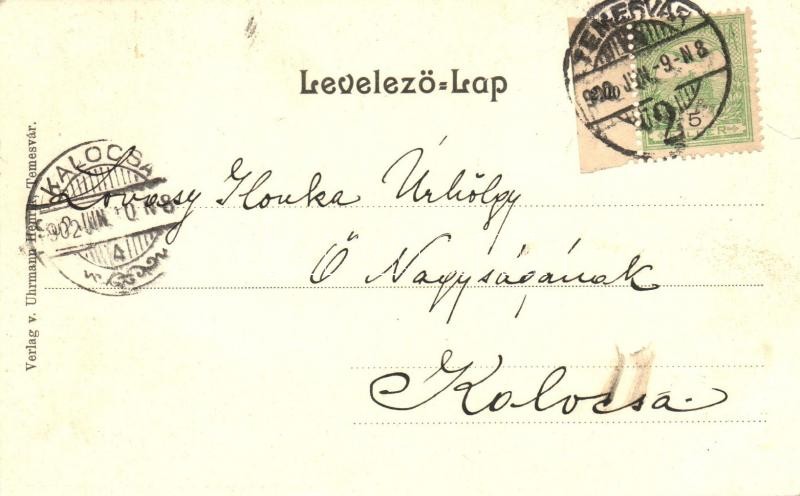 Levelező=Lap
TEMESVÁR
902 JUN. -9. N 8
2
5
KALOCSA
902 JUN. 10 N 8
4
Lovassy Ilonka Úrhölgy
Ő Nagyságának
Kalocsa
Verlag v. Uhrmann Henrik, Temesvár.